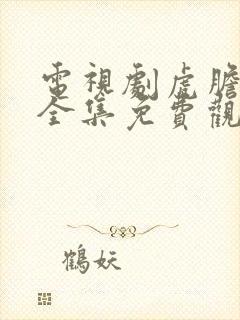 電視劇虎膽
全集免費觀
鶴妖